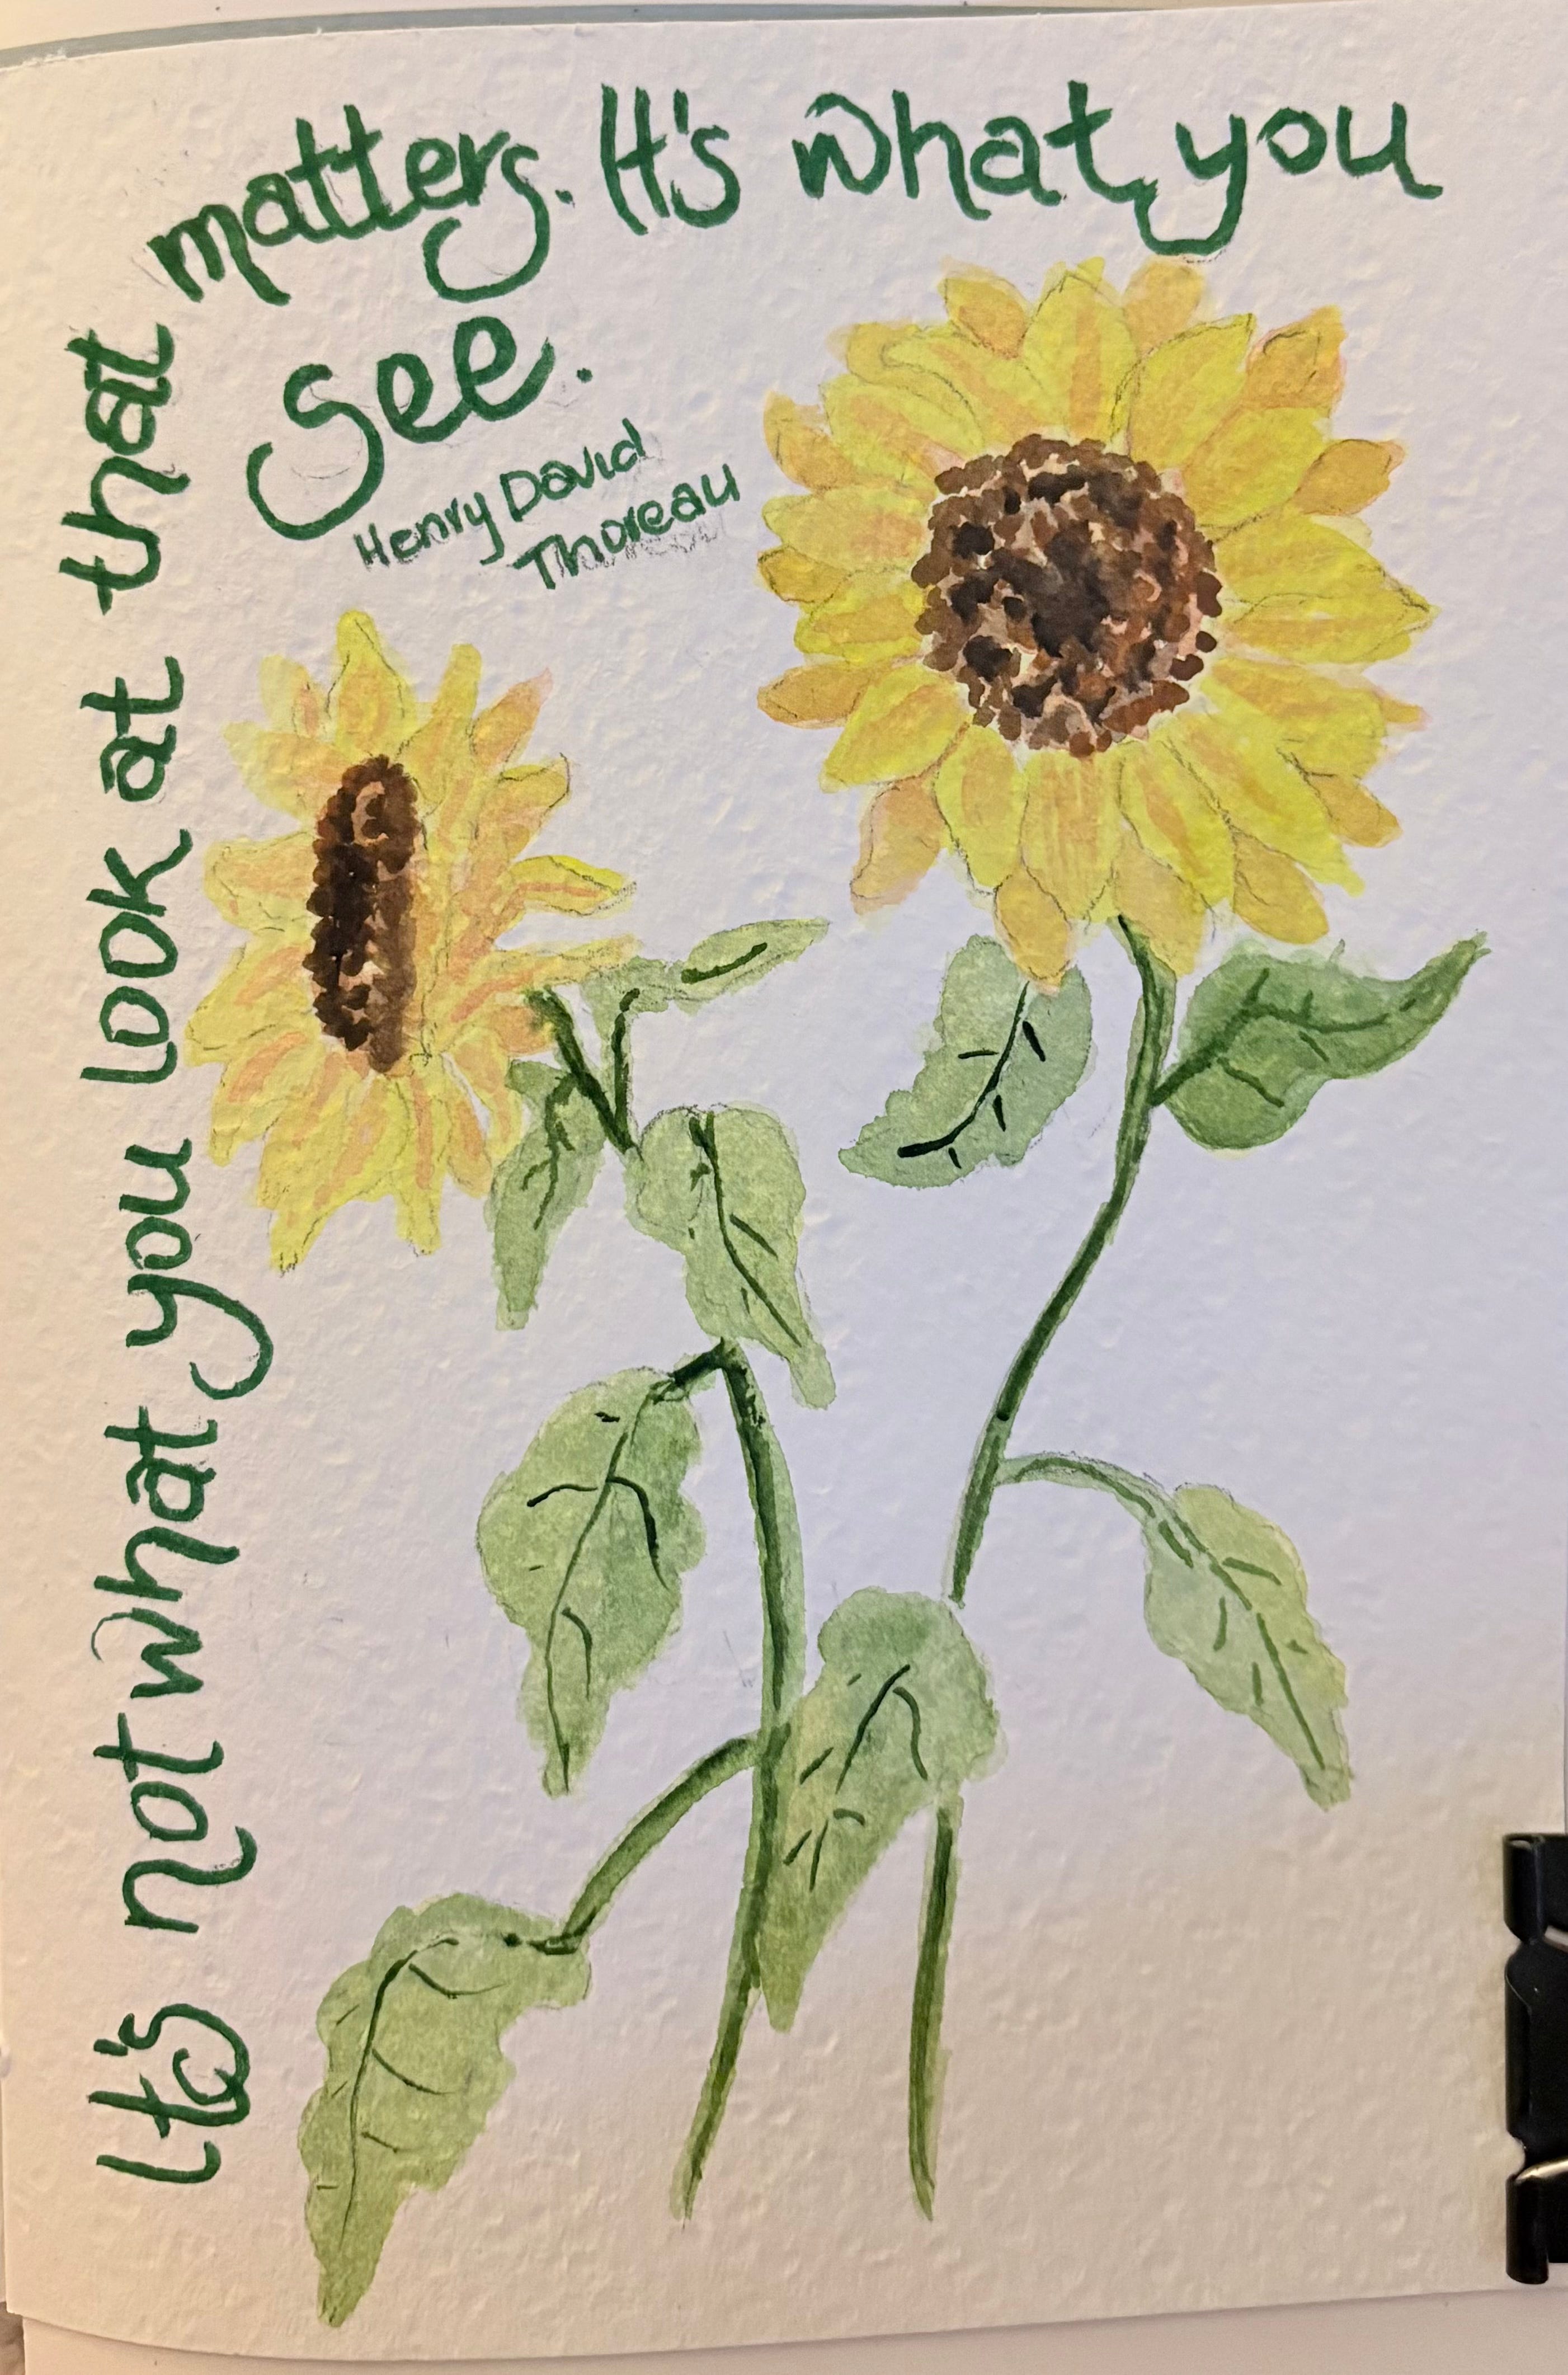 It's not what you look at that
matters. It's what you
see.
Henry David
Thoreau